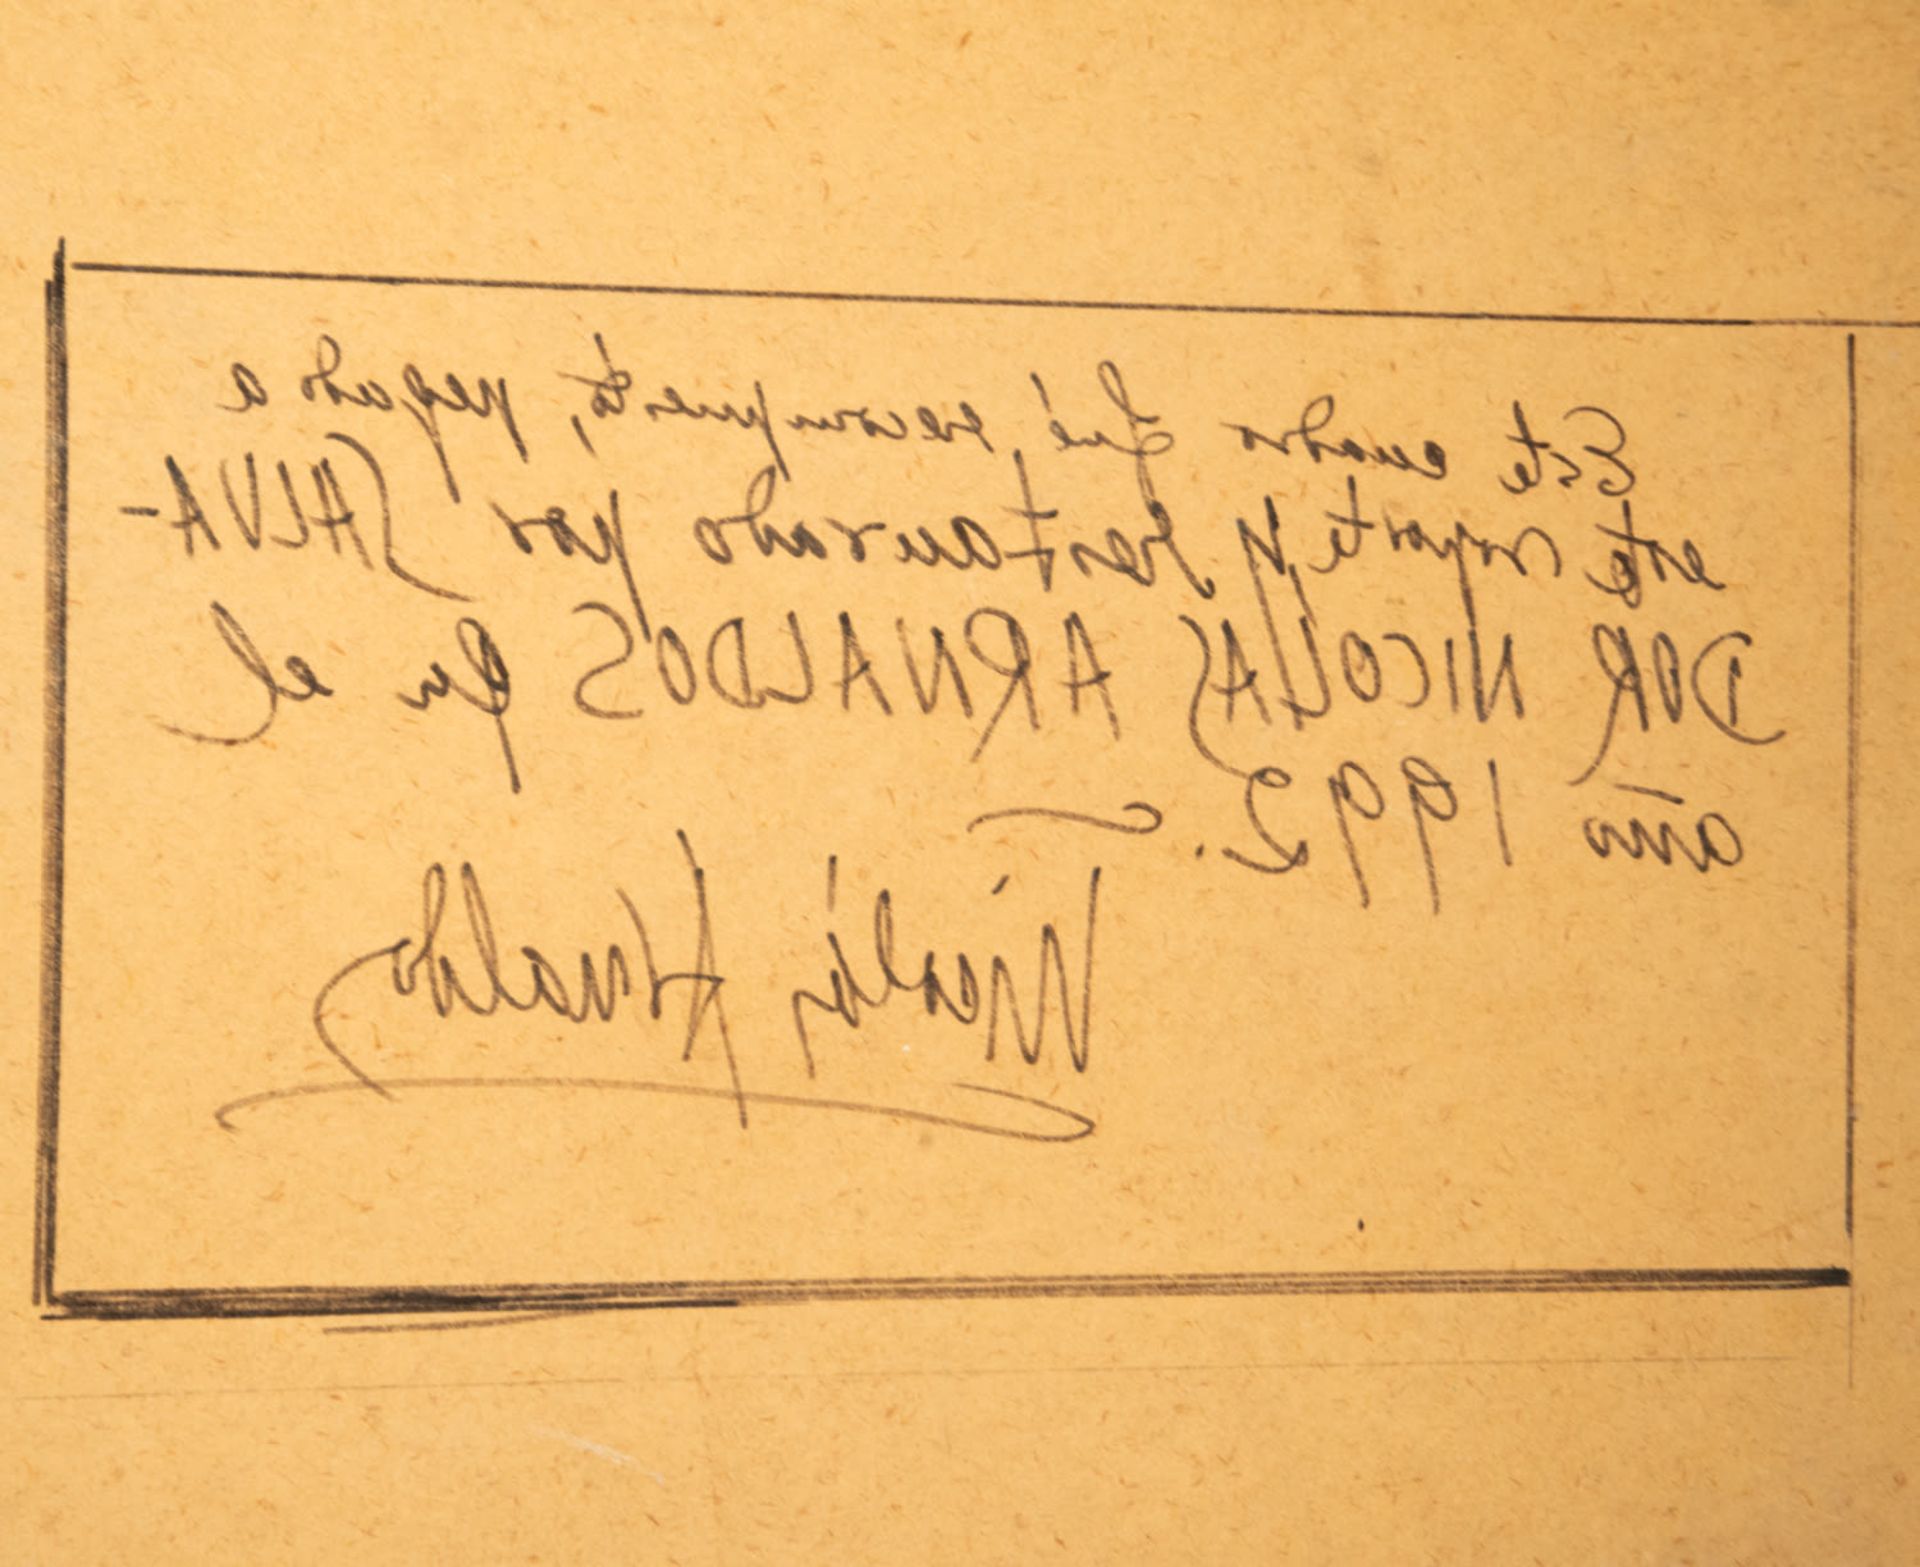 Este cuadro fué recompuesto, pegado a
este soporte y restaurado por SALVA-
DOR NICOLAS ARNALDOS en el
año 1992.
Nicolás Arnaldos